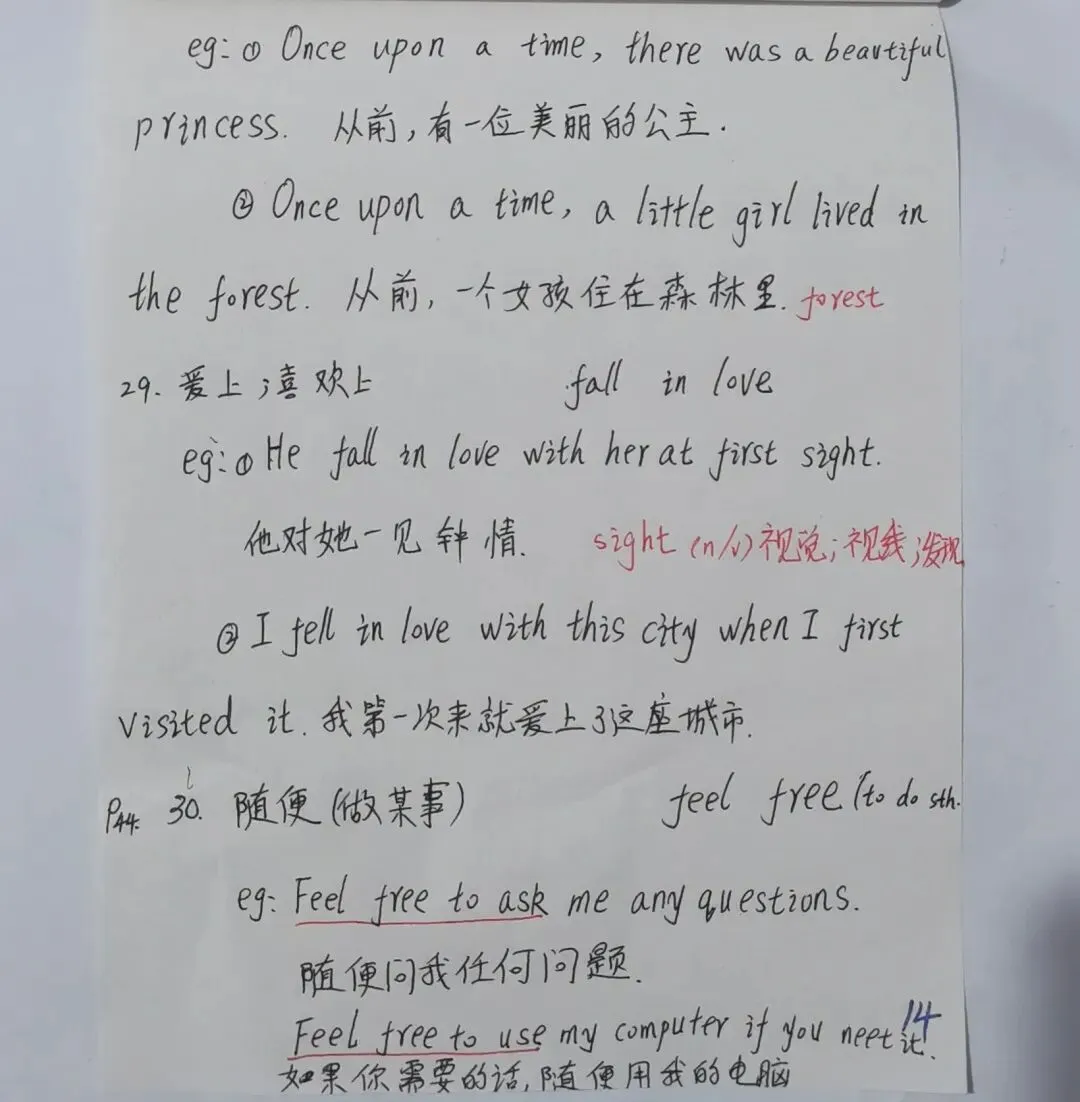 eg: ① Once upon a time, there was a beautiful
princess. 从前,有一位美丽的公主.
② Once upon a time, a little girl lived in
the forest. 从前,一个女孩住在森林里. forest
29. 爱上;喜欢上 fall in love
eg: ① He fall in love with her at first sight.
他对她一见钟情. sight (n/v) 视觉;视线;发现
② I fell in love with this city when I first
visited it. 我第一次来就爱上了这座城市.
P44. 30. 随便(做某事) feel free (to do sth.
eg: Feel free to ask me any questions.
随便问我任何问题.
Feel free to use my computer if you neet it.
如果你需要的话,随便用我的电脑
14